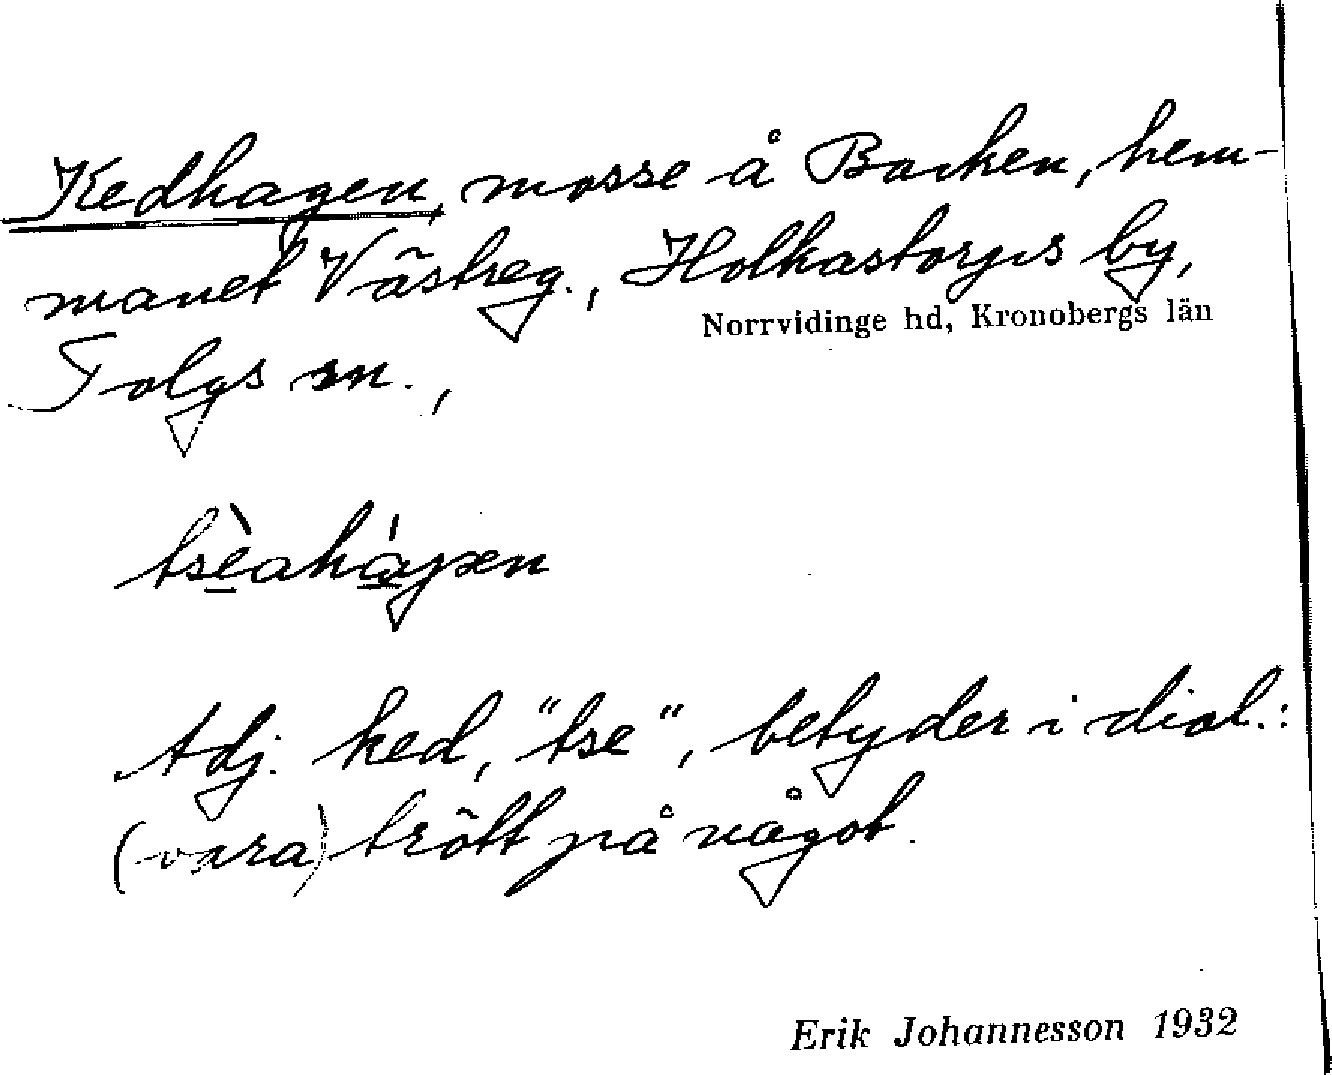 Kedhagen, mosse å Backen, hem-
manet Västreg., Holkastorps by,
Norrvidinge hd, Kronobergs län
Tolgs sn.,
tsèahágen
Adj. ked, "tse", betyder i dial.:
(vara) trött på något.
Erik Johannesson 1932